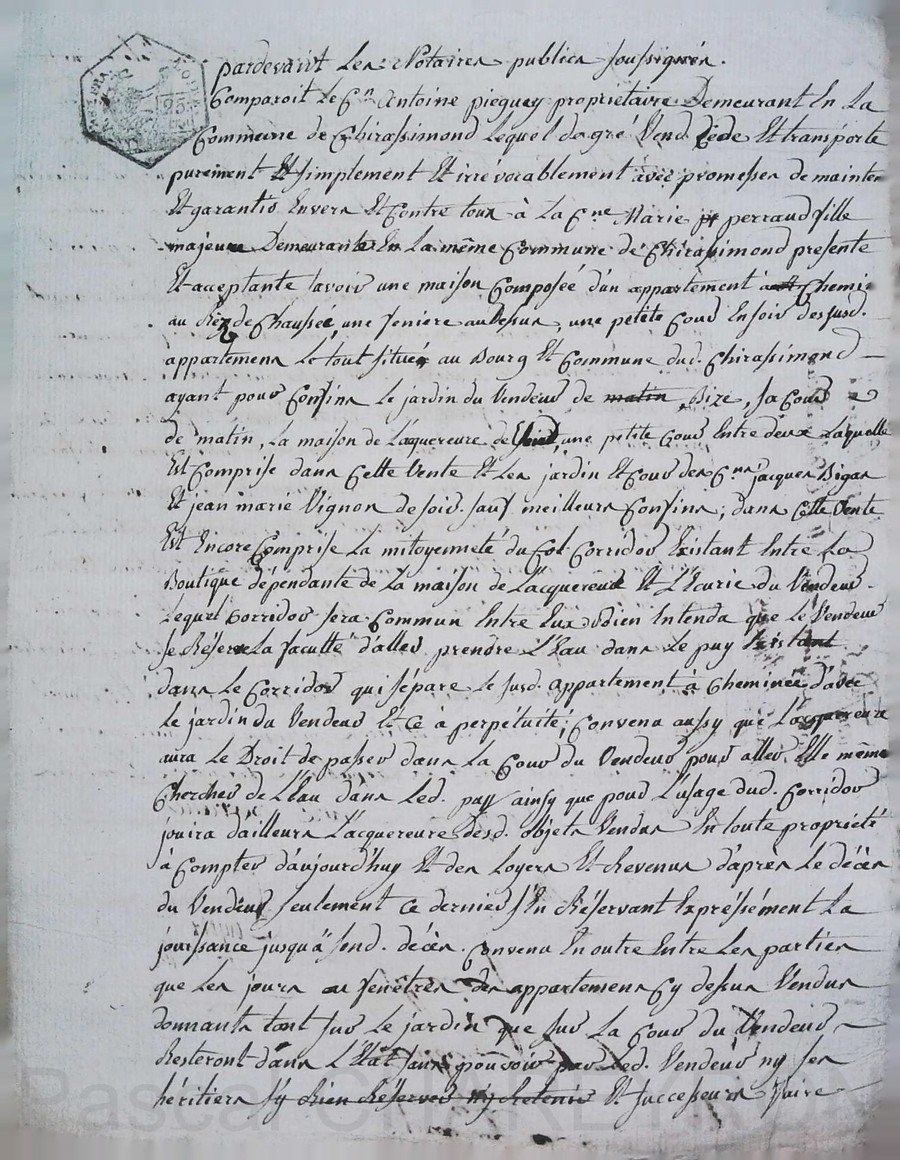 pardevant Les Notaires publics soussignés.
Comparoit Le C.en Antoine pieguey proprietaire Demeurant En La
Commune de Chirassimond Lequel de gré Vend Cede Et transporte
purement Et simplement Et irrévocablement avec promesses de mainten
Et garantis Envers Et Contre tous à La C.ne Marie perraud fille
majeure Demeurante En La même Commune de Chirassimond presente
Et acceptante savoir une maison Composée d'un appartement à Chemi
au Rez de Chaussée, une feniere au dessus, une petite Cour En soir des susd.
appartemens Le tout situé au Bourg Et Commune dud. Chirassimond
ayant pour Confins Le jardin du Vendeur de matin Bize, sa Cour
de matin, La maison de L'acquereure de une petite Cour Entre deux Laquelle
Est Comprise dans Cette Vente Et Les jardin Et Cour des C.ns jacques Bigas
Et jean marie Vignon de soir sauf meilleurs Confins; dans Cette Vente
Est Encore Comprise La mitoyenneté du Corridor Existant Entre La
Boutique dépendante de La maison de L'acquereure Et L'Ecurie du Vendeur
Lequel Corridor sera Commun Entre Eux Bien Entendu que Le Vendeur
se Réserve La faculté d'aller prendre L'Eau dans Le puy Existant
dans Le Corridor qui sépare Le susd. appartement à Cheminée d'avec
Le jardin du Vendeur Et Ce à perpétuité; Convenu aussy que L'acquereure
aura Le Droit de passer dans La Cour du Vendeur pour aller Elle même
Chercher de L'Eau dans Led. puy ainsy que pour L'usage dud. Corridor
jouira d'ailleurs L'acquereure desd. objets Vendus En toute propriété
à Compter d'aujourd'huy Et des Loyers Et Revenus d'après Le décès
du Vendeur seulement Ce dernier s'En Réservant Expréssément La
jouissance jusqu'à sond. décès. Convenu En outre Entre Les parties
que Les jours ou fenêtres des appartemens Cy dessus Vendus
donnants tant sur Le jardin que sur La Cour du Vendeur
Resteront dans L'Etat sans pouvoir par Led. Vendeur ny ses
héritiers sy Rien Réserver ny Retenir Et successeurs faire